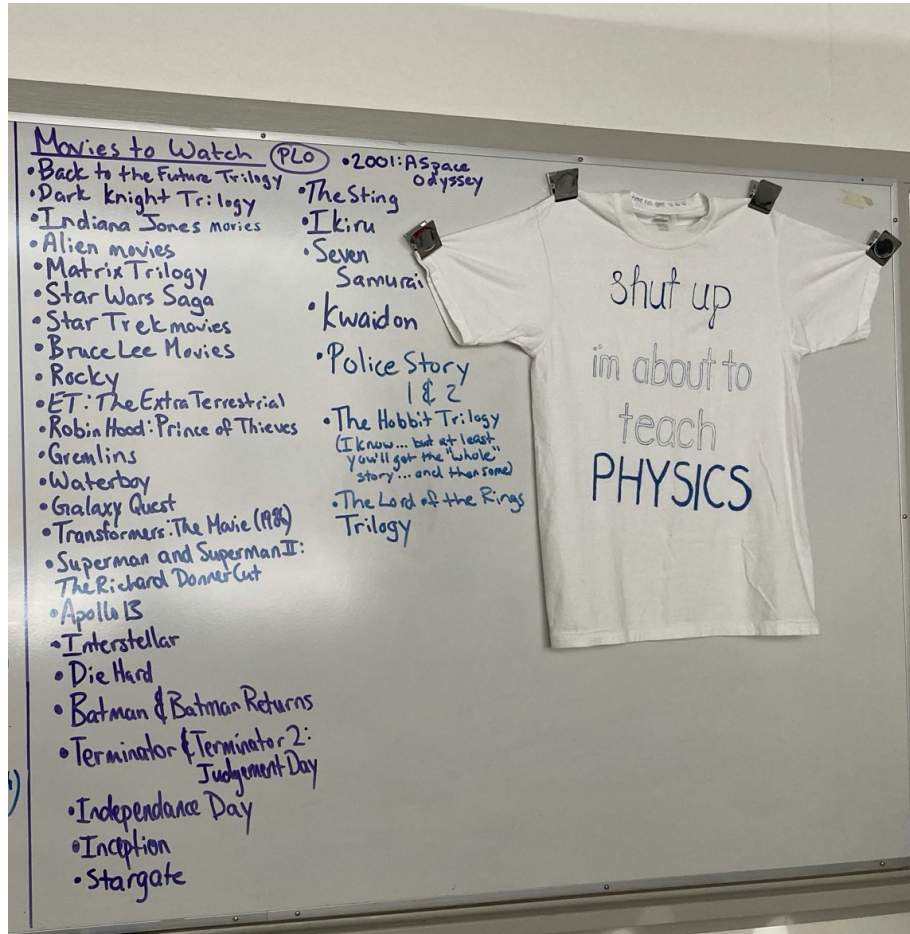 Movies to Watch PLO
•Back to the Future Trilogy
•Dark Knight Trilogy
•Indiana Jones movies
•Alien movies
•Matrix Trilogy
•Star Wars Saga
•Star Trek movies
•Bruce Lee Movies
•Rocky
•ET: The Extra Terrestrial
•Robin Hood: Prince of Thieves
•Gremlins
•Waterboy
•Galaxy Quest
•Transformers: The Movie (1986)
•Superman and Superman II:
The Richard Donner Cut
•Apollo 13
•Interstellar
•Die Hard
•Batman & Batman Returns
•Terminator & Terminator 2:
Judgement Day
•Independance Day
•Inception
•Stargate
•2001: A Space
Odyssey
•The Sting
•Ikiru
•Seven
Samurai
•Kwaidon
•Police Story
1 & 2
•The Hobbit Trilogy
(I know... but at least
you'll get the "whole"
story... and then some)
•The Lord of the Rings
Trilogy
shut up
im about to
teach
PHYSICS